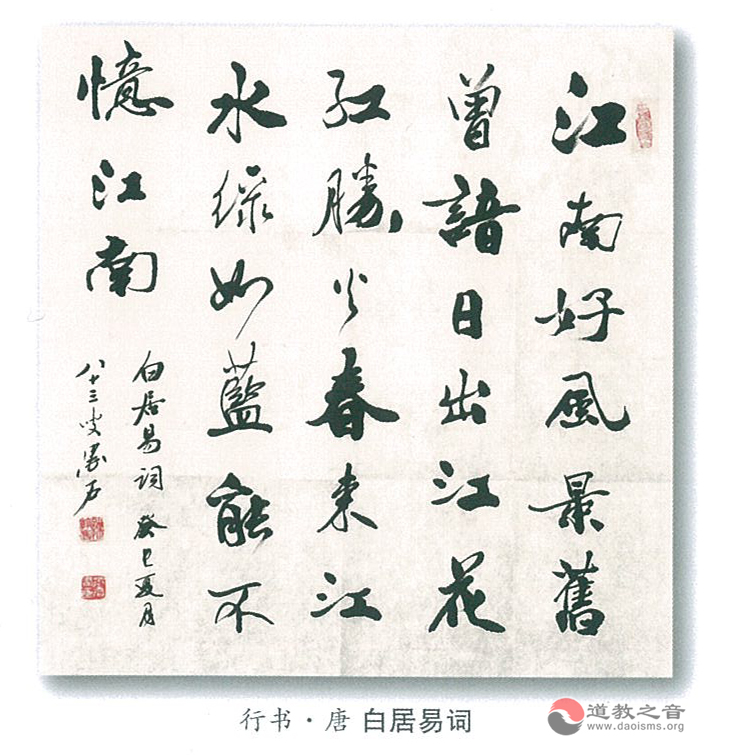 江南好風景舊
曾諳日出江花
紅勝火春来江
水綠如藍能不
憶江南
白居易词 癸巳夏月
八十三叟石
行书·唐 白居易词
道教之音
www.daoisms.org